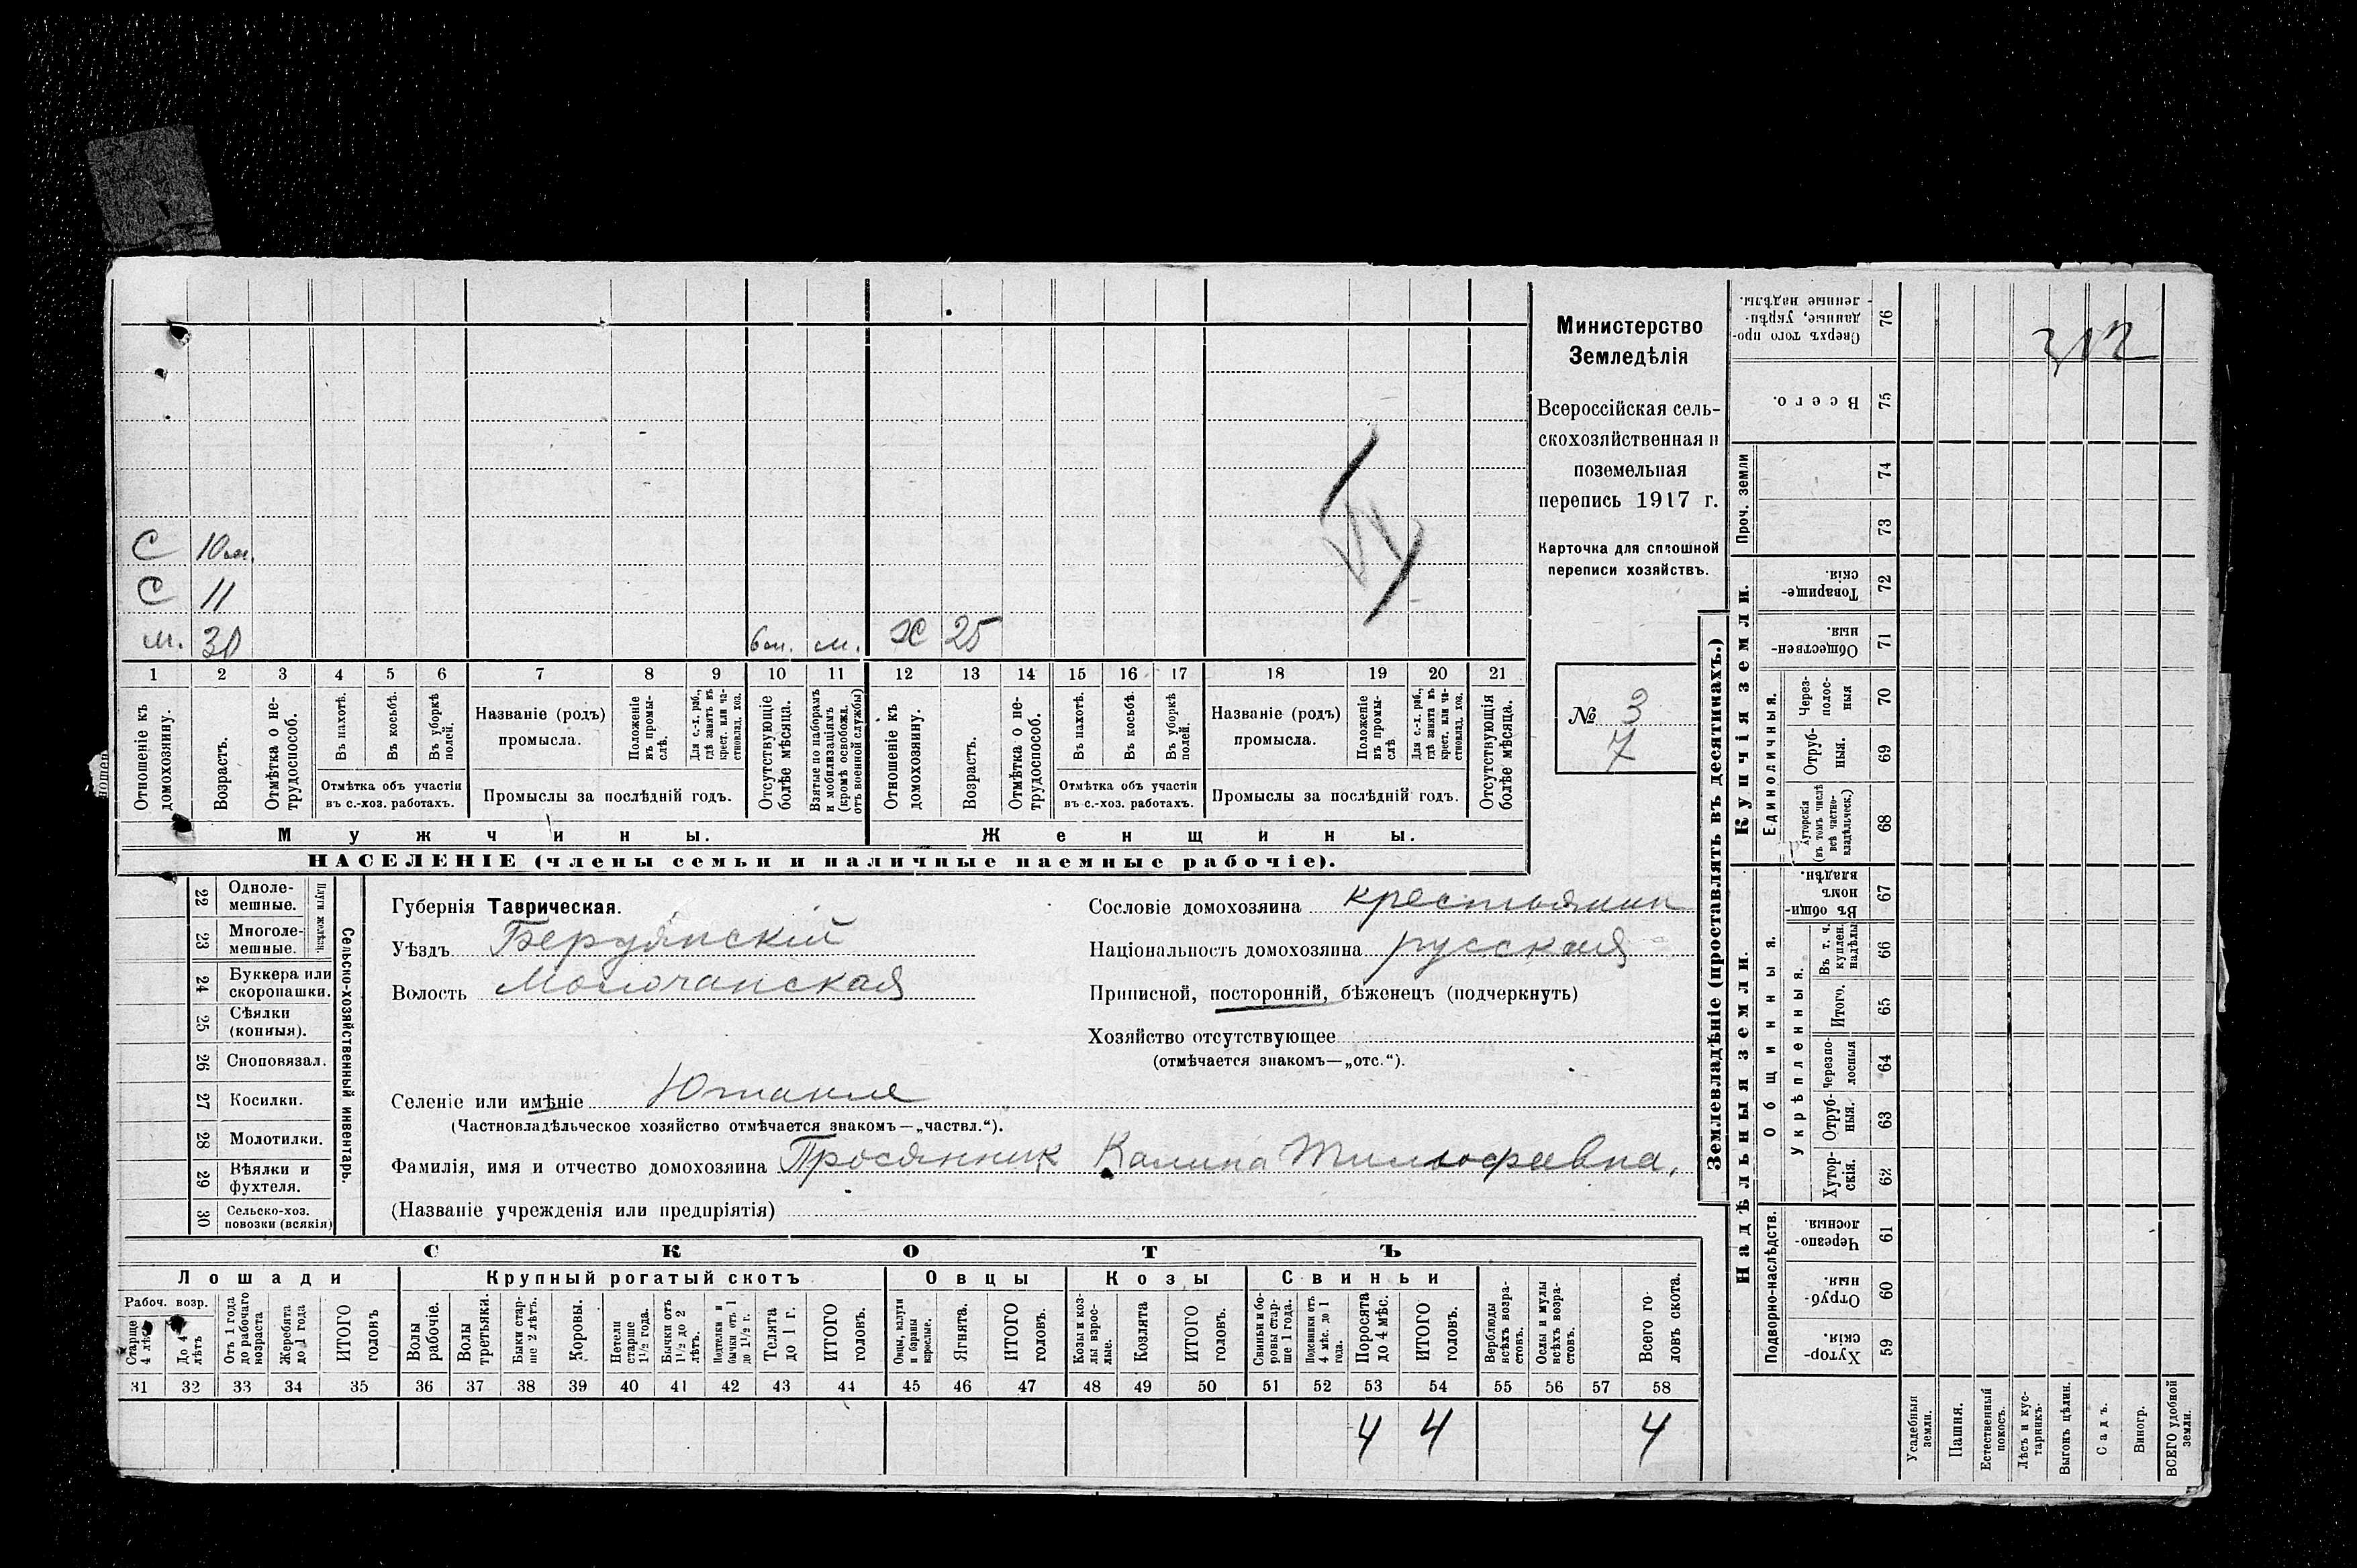 Министерство
Земледѣлія
Всероссійская сель-
скохозяйственная и
поземельная
перепись 1917 г.
Карточка для сплошной
переписи хозяйствъ.
№ 3
7
С 10 м.
С 11
м. 30 6 м. м. Х 25
1 2 3 4 5 6 7 8 9 10 11 12 13 14 15 16 17 18 19 20 21
Отношеніе къ домохозяину.
Возрастъ.
Отмѣтка о не-трудоспособ.
Въ пахотѣ.
Въ косьбѣ.
Въ уборкѣ полей.
Отмѣтка объ участіи
въ с.-хоз. работахъ.
Названіе (родъ)
промысла.
Положеніе въ промы-слѣ.
Для с.-х. раб., гдѣ занятъ въ крест. или ча-стновлад. хоз.
Промыслы за послѣдній годъ.
Отсутствующіе болѣе мѣсяца.
Взятые по наборамъ и мобилизаціямъ (кромѣ освобожд. отъ военной службы)
Отношеніе къ домохозяину.
Возрастъ.
Отмѣтка о не-трудоспособ.
Въ пахотѣ.
Въ косьбѣ.
Въ уборкѣ полей.
Отмѣтка объ участіи
въ с.-хоз. работахъ.
Названіе (родъ)
промысла.
Положеніе въ промы-слѣ
Для с.-х. раб., гдѣ занята въ крест. или ча-стновлад. хоз.
Промыслы за послѣдній годъ.
Отсутствующія болѣе мѣсяца.
Мужчины. Женщины.
НАСЕЛЕНІЕ (члены семьи и наличные наемные рабочіе).
22 Одноле-мешные.
23 Многоле-мешные.
Плуги желѣзн.
24 Буккера или скоропашки.
25 Сѣялки (конныя).
26 Сноповязал.
27 Косилки.
28 Молотилки.
29 Вѣялки и фухтеля.
30 Сельско-хоз. повозки (всякія)
Сельско-хозяйственный инвентарь.
Губернія Таврическая.
Уѣздъ Бердянскій
Волость Молочанская
Сословіе домохозяина крестьянин
Національность домохозяина русская
Приписной, посторонній, бѣженецъ (подчеркнуть)
Хозяйство отсутствующее
(отмѣчается знакомъ—„отс.“).
Селеніе или имѣніе
(Частновладѣльческое хозяйство отмѣчается знакомъ—„частвл.“).
Фамилія, имя и отчество домохозяина Просянник
(Названіе учрежденія или предпріятія)
СКОТЪ
Лошади Крупный рогатый скотъ Овцы Козы Свиньи
Рабоч. возр.
Старше 4 лѣтъ
До 4 лѣтъ
Отъ 1 года до рабочаго возраста
Жеребята до 1 года
ИТОГО головъ
Волы рабочіе.
Волы третьяки.
Быки стар-ше 2 лѣтъ.
Коровы.
Нетели старше 1½ года.
Бычки отъ 1½ до 2 лѣтъ.
Подтелки и бычки отъ 1 до 1½ г.
Телята до 1 г.
ИТОГО головъ.
Овцы, валухи и бараны взрослые.
Ягнята.
ИТОГО головъ.
Козы и коз-лы взрос-лые.
Козлята
ИТОГО головъ.
Свиньи и бо-ровы стар-ше 1 года.
Подсвинки отъ 4 мѣс. до 1 года.
Поросята до 4 мѣс.
ИТОГО головъ.
Верблюды всѣхъ возра-стовъ.
Ослы и мулы всѣхъ возра-стовъ.
Всего го-ловъ скота.
31 32 33 34 35 36 37 38 39 40 41 42 43 44 45 46 47 48 49 50 51 52 53 54 55 56 57 58
4 4 4
Землевладѣніе (проставлять въ десятинахъ.)
Купчія земли.
Надѣльныя земли.
Сверхъ того про-данные, укрѣп-ленные надѣлы. 76
Всего. 75
Проч. земли 74
73
Товарище-скія. 72
Обществен-ныя. 71
Единоличныя.
Через-полос-ныя 70
Отруб-ныя. 69
Хуторскія (въ томъ числѣ всѣ частно-владѣльческ.) 68
Общинныя.
Въ общи-номъ владѣн. 67
Укрѣпленныя.
Въ т. ч. куплен. надѣлы 66
Итого. 65
Черезпо-лосныя 64
Отруб-ныя. 63
Хутор-скія. 62
Подворно-наслѣдств.
Черезпо-лосныя 61
Отруб-ныя. 60
Хутор-скія. 59
Усадебныя земли.
Пашня.
Естественный покосъ.
Лѣсъ и кус-тарникъ.
Выгонъ цѣлин.
Садъ.
Виногр.
ВСЕГО удобной земли.